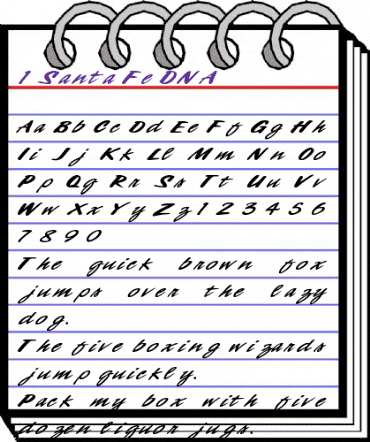 1 Santa Fe DNA
Aa Bb Cc Dd Ee Ff Gg Hh
Ii Jj Kk Ll Mm Nn Oo
Pp Qq Rr Ss Tt Uu Vv
Ww Xx Yy Zz 1 2 3 4 5 6
7 8 9 0
The quick brown fox
jumps over the lazy
dog.
The five boxing wizards
jump quickly.
Pack my box with five
dozen liquor jugs.